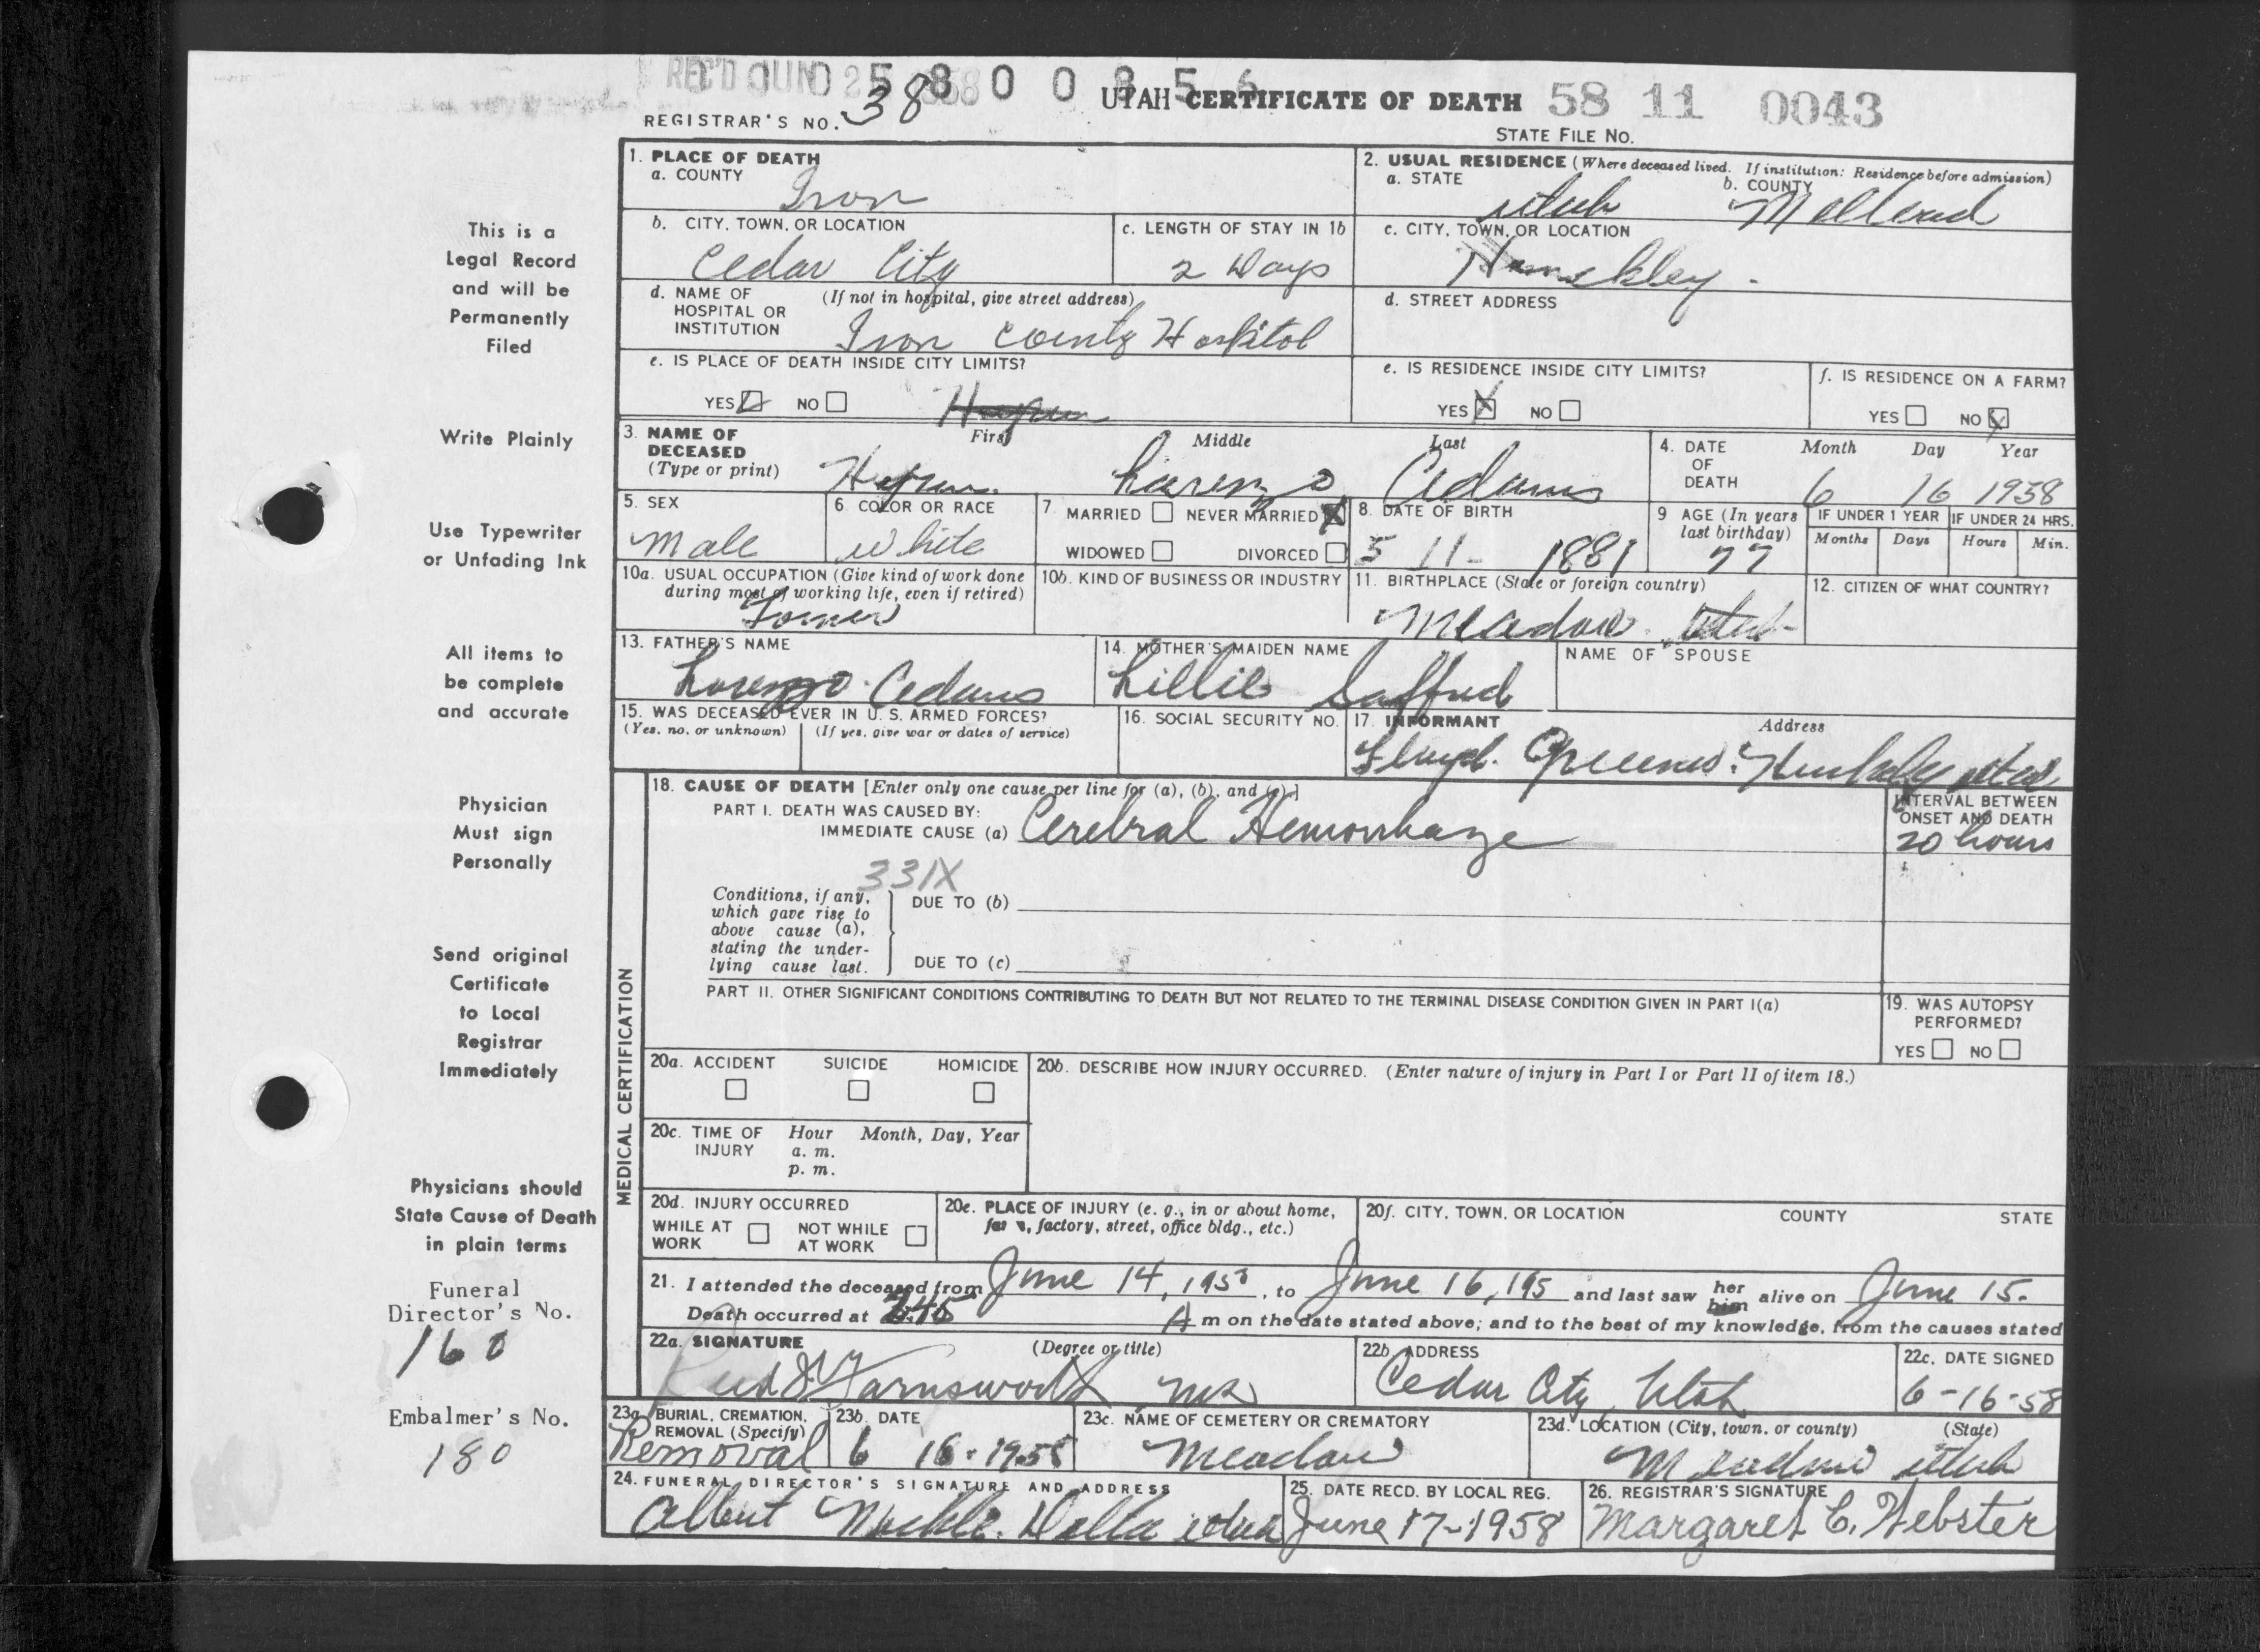 REC'D JUN 2 1958
5 8 0 0 8 5 6
UTAH CERTIFICATE OF DEATH 58 11 0043
REGISTRAR'S NO. 38
STATE FILE NO.
This is a
Legal Record
and will be
Permanently
Filed
Write Plainly
Use Typewriter
or Unfading Ink
All items to
be complete
and accurate
Physician
Must sign
Personally
Send original
Certificate
to Local
Registrar
Immediately
Physicians should
State Cause of Death
in plain terms
Funeral
Director's No.
160
Embalmer's No.
180
1. PLACE OF DEATH
a. COUNTY
Iron
2. USUAL RESIDENCE (Where deceased lived. If institution: Residence before admission)
a. STATE b. COUNTY
Utah Millard
b. CITY, TOWN, OR LOCATION
Cedar City
c. LENGTH OF STAY IN 1b
2 Days
c. CITY, TOWN, OR LOCATION
Hinckley
d. NAME OF HOSPITAL OR INSTITUTION (If not in hospital, give street address)
Iron County Hospital
d. STREET ADDRESS
e. IS PLACE OF DEATH INSIDE CITY LIMITS?
YES NO
e. IS RESIDENCE INSIDE CITY LIMITS?
YES X NO
f. IS RESIDENCE ON A FARM?
YES NO X
3. NAME OF DECEASED (Type or print)
First Middle Last
Hyrum Lorenzo Adams
4. DATE OF DEATH
Month Day Year
6 16 1958
5. SEX
Male
6 COLOR OR RACE
White
7 MARRIED NEVER MARRIED X
WIDOWED DIVORCED
8. DATE OF BIRTH
5 11- 1881
9 AGE (In years last birthday)
77
IF UNDER 1 YEAR IF UNDER 24 HRS.
Months Days Hours Min.
10a. USUAL OCCUPATION (Give kind of work done during most of working life, even if retired)
Farmer
10b. KIND OF BUSINESS OR INDUSTRY
11. BIRTHPLACE (State or foreign country)
Meadow Utah
12. CITIZEN OF WHAT COUNTRY?
13. FATHER'S NAME
Lorenzo Adams
14. MOTHER'S MAIDEN NAME
Lillie Safford
NAME OF SPOUSE
15. WAS DECEASED EVER IN U. S. ARMED FORCES?
(Yes, no, or unknown) (If yes, give war or dates of service)
16. SOCIAL SECURITY NO.
17. INFORMANT Address
Floyd Hinckley Utah
MEDICAL CERTIFICATION
18. CAUSE OF DEATH [Enter only one cause per line for (a), (b), and (c).]
PART I. DEATH WAS CAUSED BY:
IMMEDIATE CAUSE (a) Cerebral Hemorrhage
INTERVAL BETWEEN ONSET AND DEATH
20 hours
331X
Conditions, if any, which gave rise to above cause (a), stating the underlying cause last.
DUE TO (b)
DUE TO (c)
PART II. OTHER SIGNIFICANT CONDITIONS CONTRIBUTING TO DEATH BUT NOT RELATED TO THE TERMINAL DISEASE CONDITION GIVEN IN PART I(a)
19. WAS AUTOPSY PERFORMED?
YES NO
20a. ACCIDENT SUICIDE HOMICIDE
20b. DESCRIBE HOW INJURY OCCURRED. (Enter nature of injury in Part I or Part II of item 18.)
20c. TIME OF INJURY Hour Month, Day, Year
a. m.
p. m.
20d. INJURY OCCURRED
WHILE AT WORK NOT WHILE AT WORK
20e. PLACE OF INJURY (e. g., in or about home, factory, street, office bldg., etc.)
20f. CITY, TOWN, OR LOCATION COUNTY STATE
21. I attended the deceased from June 14, 1958, to June 16, 195 and last saw her him alive on June 15.
Death occurred at 2:45 A m on the date stated above; and to the best of my knowledge, from the causes stated
22a. SIGNATURE (Degree or title)
Farnsworth MD
22b. ADDRESS
Cedar City, Utah
22c. DATE SIGNED
6-16-58
23a. BURIAL, CREMATION, REMOVAL (Specify)
Removal
23b. DATE
6 16-1958
23c. NAME OF CEMETERY OR CREMATORY
Meadow
23d. LOCATION (City, town, or county) (State)
Meadow Utah
24. FUNERAL DIRECTOR'S SIGNATURE AND ADDRESS
Albert Nickle. Delta Utah
25. DATE RECD. BY LOCAL REG.
June 17-1958
26. REGISTRAR'S SIGNATURE
Margaret C. Webster